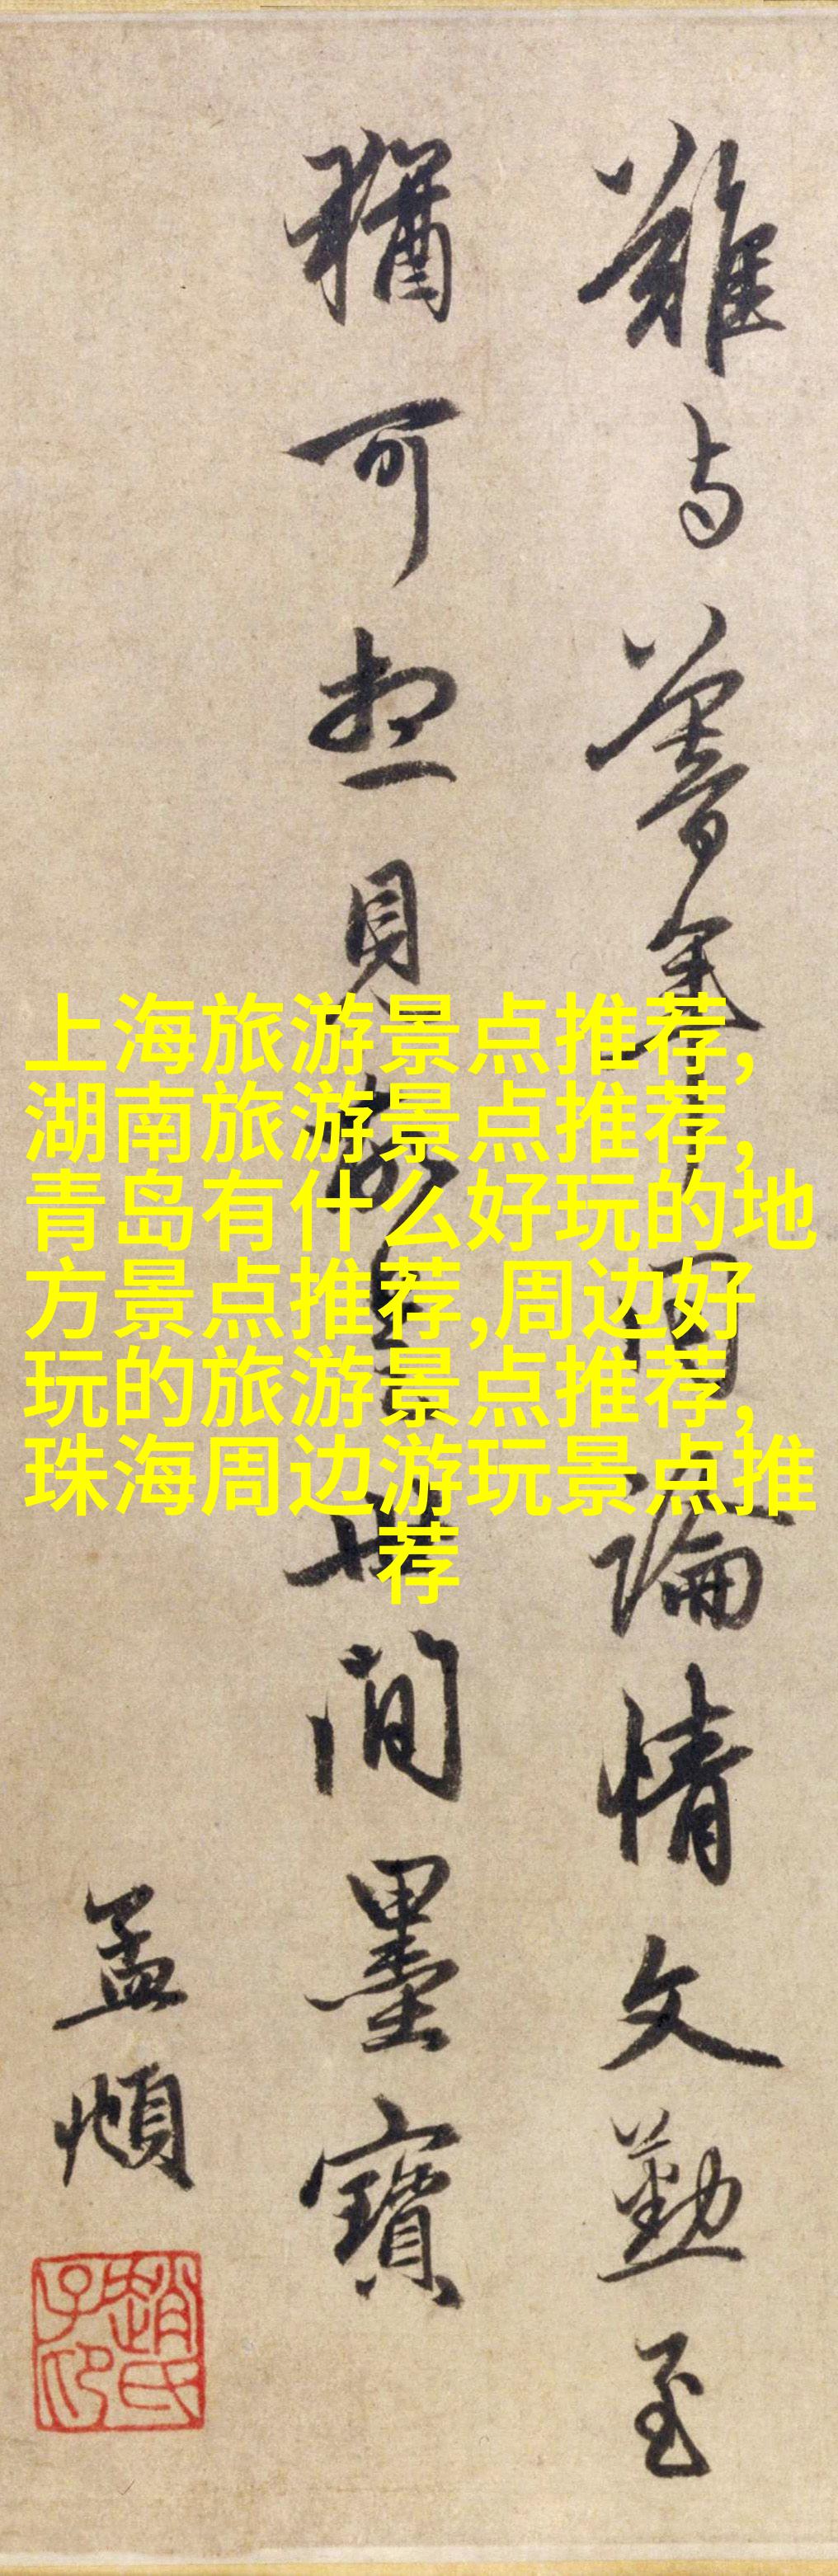 難与蓦
論情文勤至
猶可想見
世間墨寶
孟頫
趙氏子印
上海旅游景点推荐,
湖南旅游景点推荐,
青岛有什么好玩的地
方景点推荐,周边好
玩的旅游景点推荐,
珠海周边游玩景点推
荐